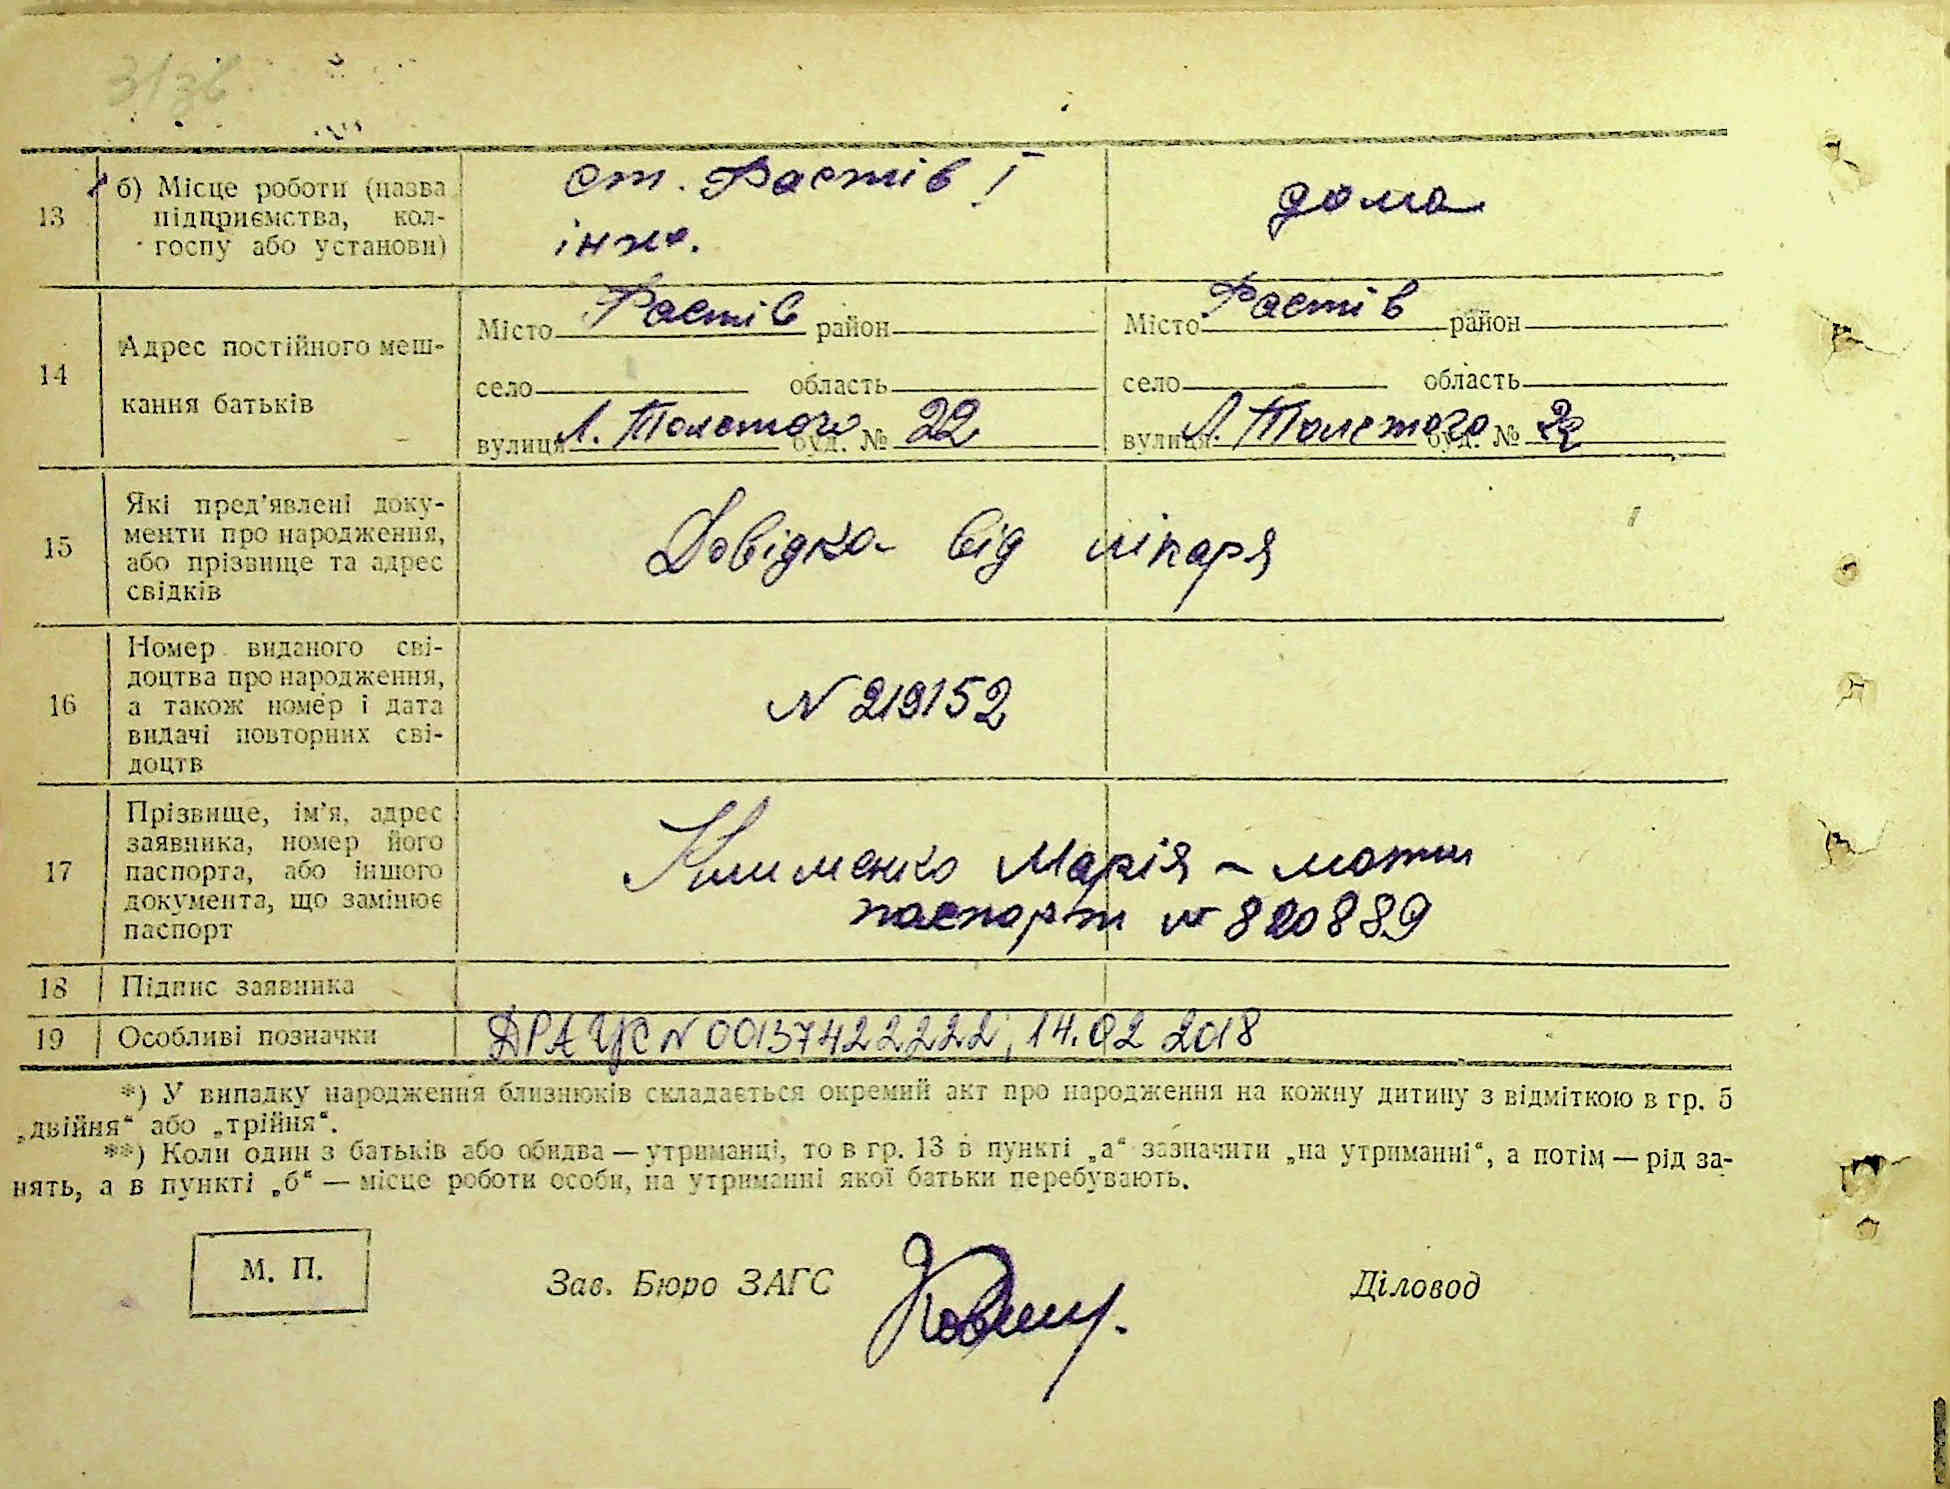 31зв
13 б) Місце роботи (назва підприємства, колгоспу або установи)
ст. Фастів I
інж.
дома
14 Адрес постійного мешкання батьків
Місто Фастів район
село область
вулиця Л. Толстого буд. № 22
Місто Фастів район
село область
вулиця Л. Толстого буд. № 22
15 Які пред'явлені доку-
менти про народження,
або прізвище та адрес
свідків
Довідка від лікаря
16 Номер виданого сві-
доцтва про народження,
а також номер і дата
видачі повторних сві-
доцтв
N 219152
17 Прізвище, ім'я, адрес
заявника, номер його
паспорта, або іншого
документа, що замінює
паспорт
Клименко Марія - мати
паспорт № 820889
18 Підпис заявника
19 Особливі позначки
ДРАЦС N 00137422222, 14.02 2018
*) У випадку народження близнюків складається окремий акт про народження на кожну дитину з відміткою в гр. 5
„двійня“ або „трійня“.
**) Коли один з батьків або обидва — утриманці, то в гр. 13 в пункті „а“ зазначити „на утриманні“, а потім — рід за-
нять, а в пункті „б“ — місце роботи особи, на утриманні якої батьки перебувають.
М. П.
Зав. Бюро ЗАГС
Діловод